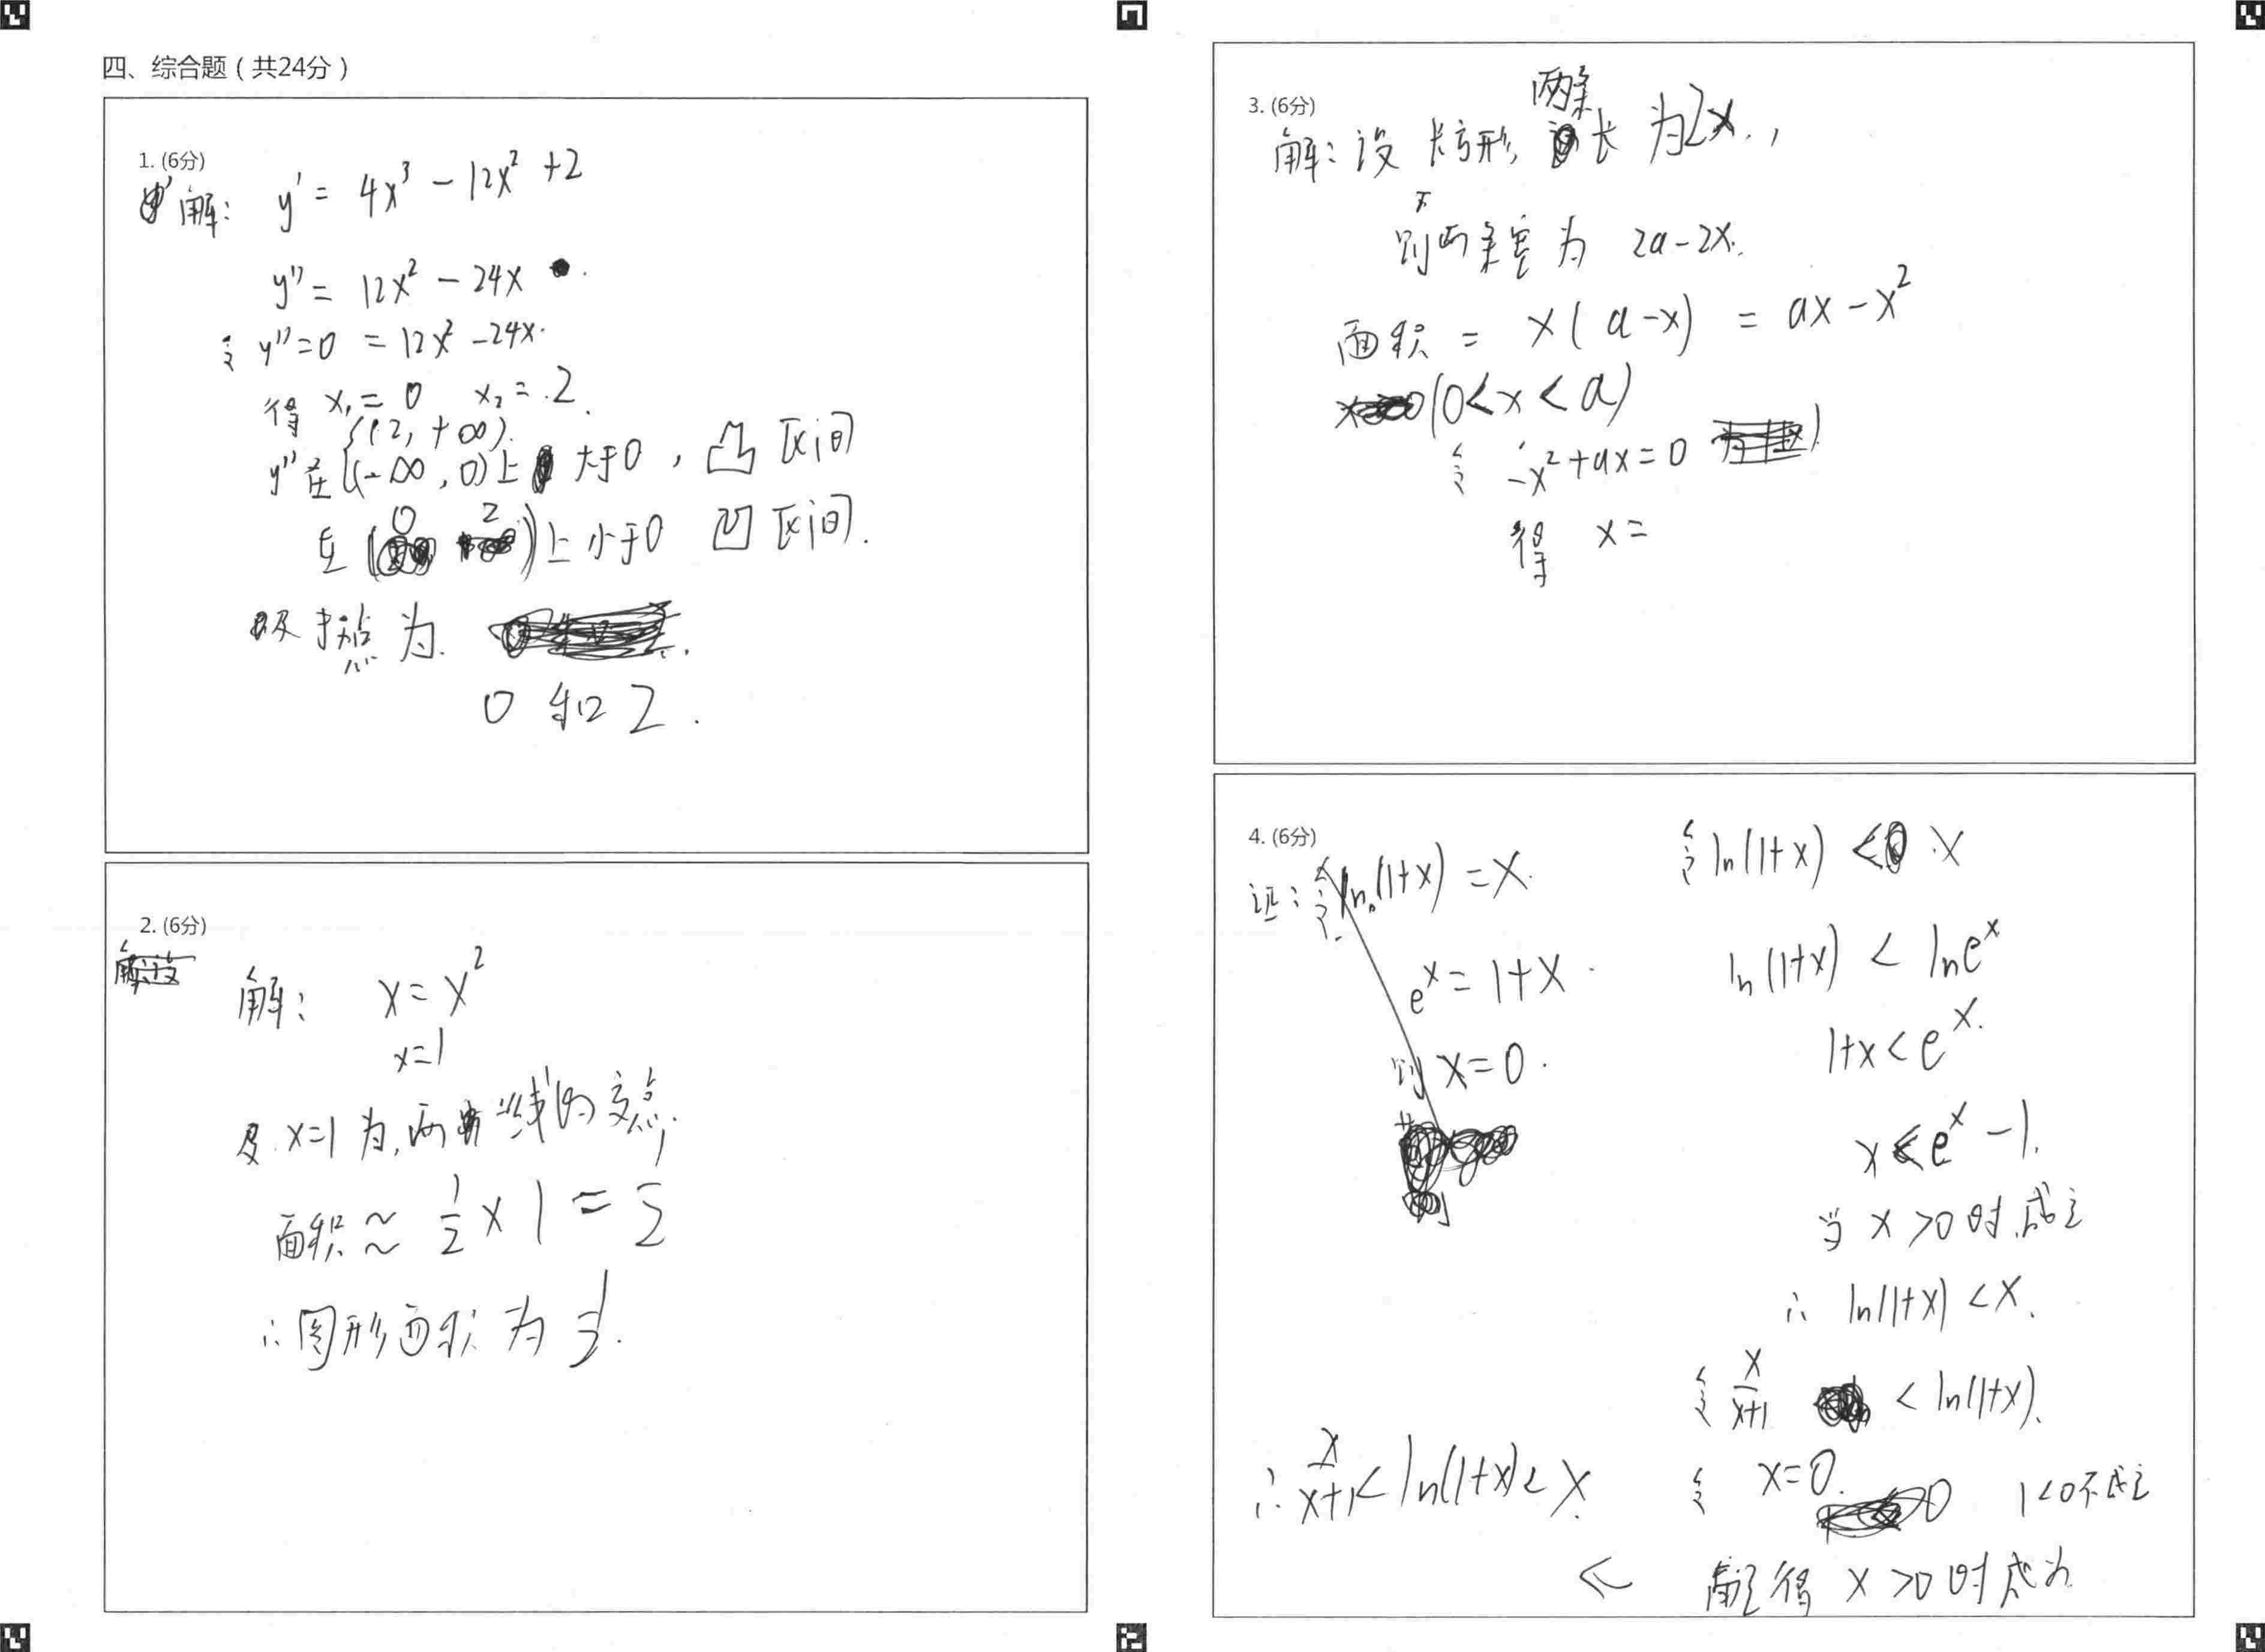 四、综合题（共24分）
1. (6分)
解： y' = 4x³ - 12x² + 2
y'' = 12x² - 24x .
令 y''=0 = 12x² - 24x.
得 x₁ = 0 x₂ = 2.
(2, +∞).
y''在(-∞, 0)上 大于0 , 凸区间
在(0 2)上小于0 凹区间.
为.
0 和 2 .
2. (6分)
解： x = x²
x=1
x=1 为 两 线的交点,
面积 ≈ 1/2 × 1 =
∴ 图形面积 为
3. (6分)
两条
解：设 长方形 长 为2x.,
则两条宽 为 2a-2x.
面积 = x(a-x) = ax-x²
(0<x<a)
令 -x²+ax=0
得 x=
4. (6分)
证：令ln(1+x) =x.
eˣ = 1+x .
则 x=0 .
令ln(1+x) < x
ln(1+x) < lneˣ
1+x<eˣ.
x<eˣ-1.
当 x>0时.成立
∴ ln(1+x) <x.
令 x/(x+1) < ln(1+x).
令 x=0. 0 1<0不成立
得 x>0时成立
∴ x/(x+1) < ln(1+x)< x.